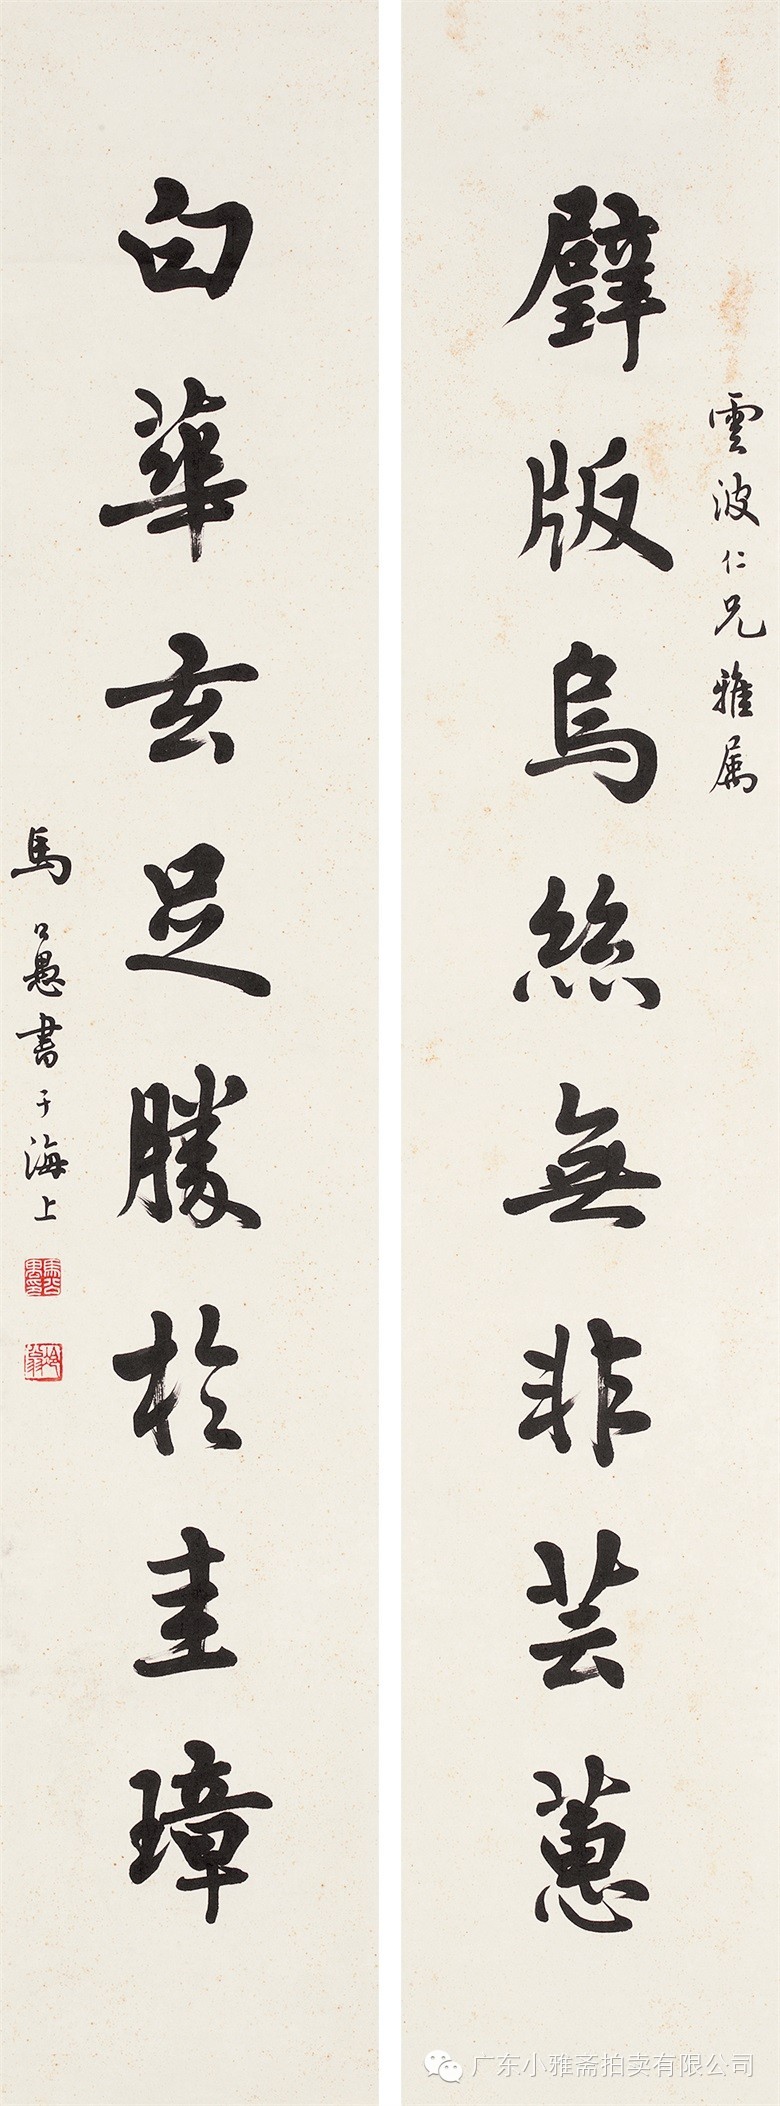 雲波仁兄雅属
璧版烏絲無非芸蕙
白華玄足勝於圭璋
馬公愚書于海上
广东小雅斋拍卖有限公司